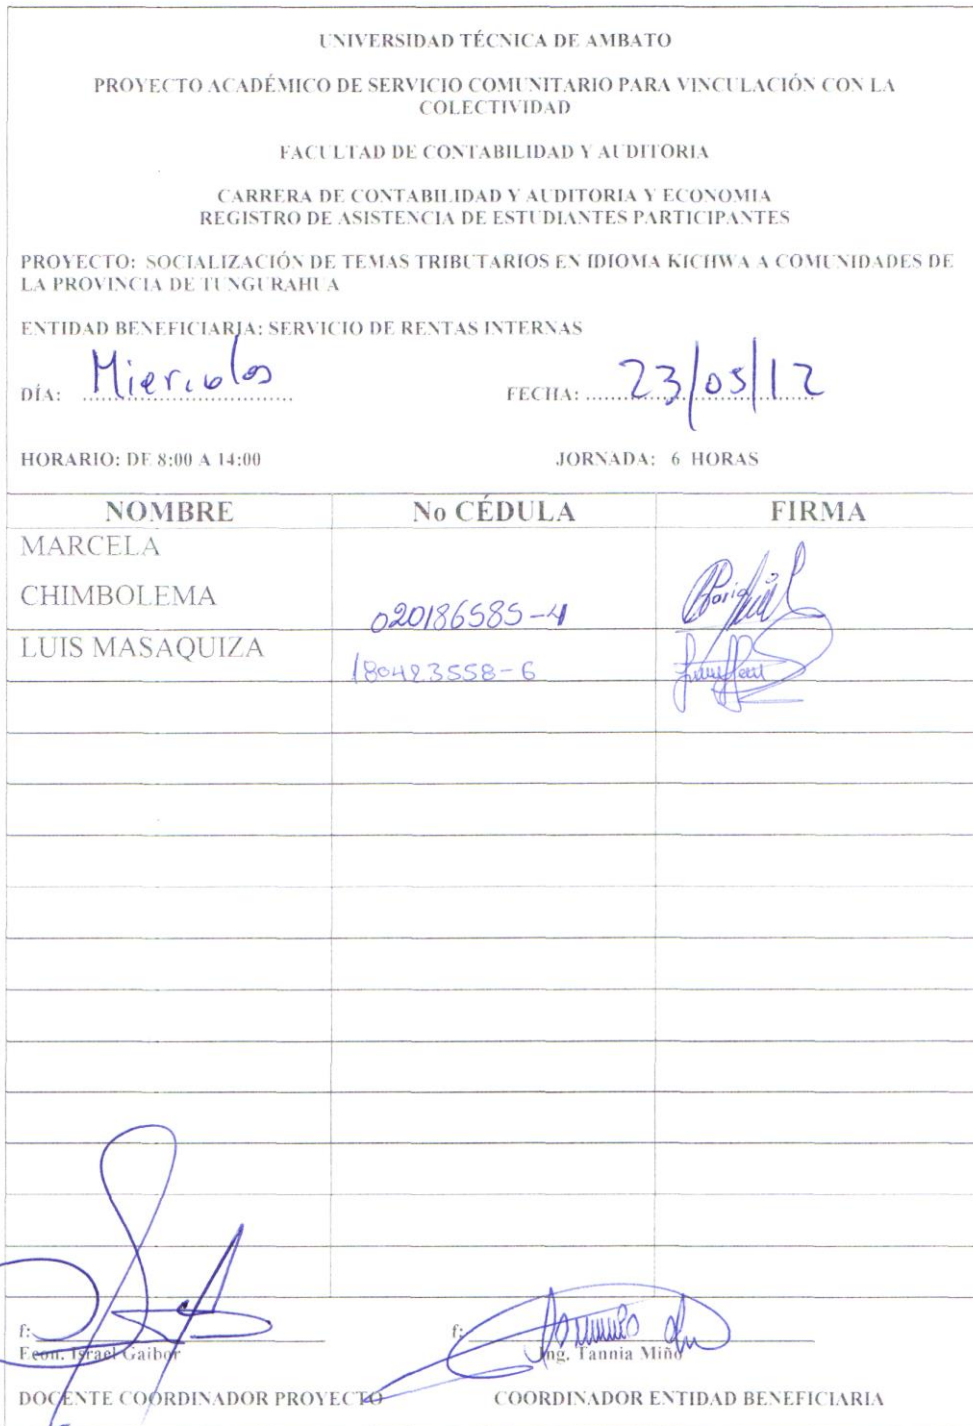 UNIVERSIDAD TÉCNICA DE AMBATO
PROYECTO ACADÉMICO DE SERVICIO COMUNITARIO PARA VINCULACIÓN CON LA
COLECTIVIDAD
FACULTAD DE CONTABILIDAD Y AUDITORIA
CARRERA DE CONTABILIDAD Y AUDITORIA Y ECONOMIA
REGISTRO DE ASISTENCIA DE ESTUDIANTES PARTICIPANTES
PROYECTO: SOCIALIZACIÓN DE TEMAS TRIBUTARIOS EN IDIOMA KICHWA A COMUNIDADES DE
LA PROVINCIA DE TUNGURAHUA
ENTIDAD BENEFICIARIA: SERVICIO DE RENTAS INTERNAS
DÍA: Miercoles FECHA: 23/05/12
HORARIO: DE 8:00 A 14:00 JORNADA: 6 HORAS
NOMBRE No CÉDULA FIRMA
MARCELA
CHIMBOLEMA 020186585-4
LUIS MASAQUIZA 180423558-6
f: f:
Econ. Israel Gaibor Ing. Tannia Miño
DOCENTE COORDINADOR PROYECTO COORDINADOR ENTIDAD BENEFICIARIA